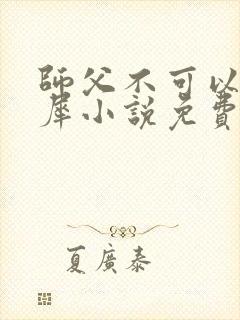 師父不可以
犀小說免費
夏廣泰